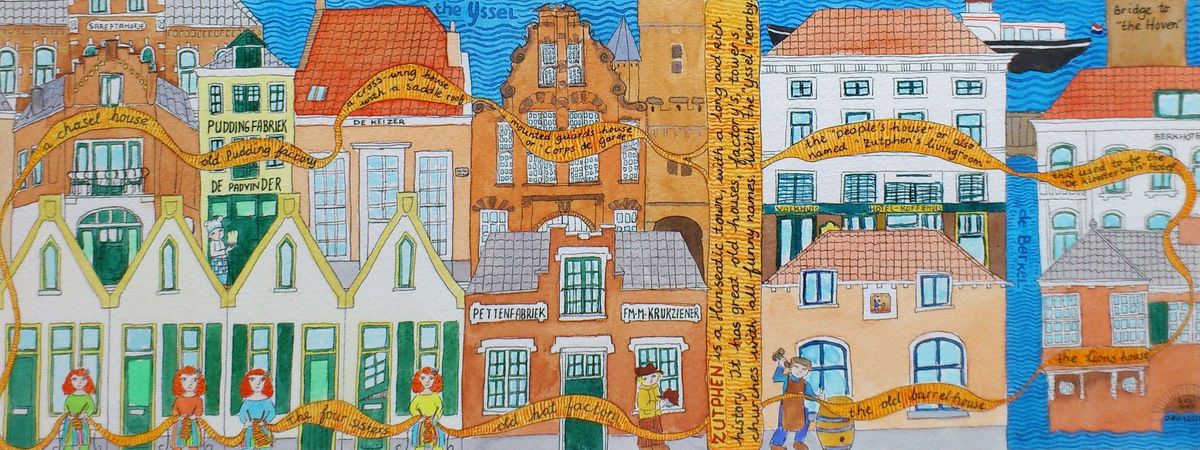 SAREPTAHOFJE
the Yssel
Bridge to
"the Hoven"
PUDDINGFABRIEK
DE PADVINDER
DE KEIZER
a chasel house
old Pudding factory
a cross-wing house
with a saddle roof
mounted guards-house
or "Corps de garde"
the "people's house" or also
named "Zutphen's livingroom"
BERKHOTEL
this used to be the
"De Kloosterbuin" Hotel
VOLKHUIS HOTEL-KOFFIEHUIS
de Berkel
ZUTPHEN is a Hanseatic town, with a long and rich
history. It has great old houses, factory's, towers,
churches with all funny names. With the Yssel nearby
PETTENFABRIEK
FM·M·KRUKZIENER
the four sisters
old hat factory
the old barrelhouse
the Lions house